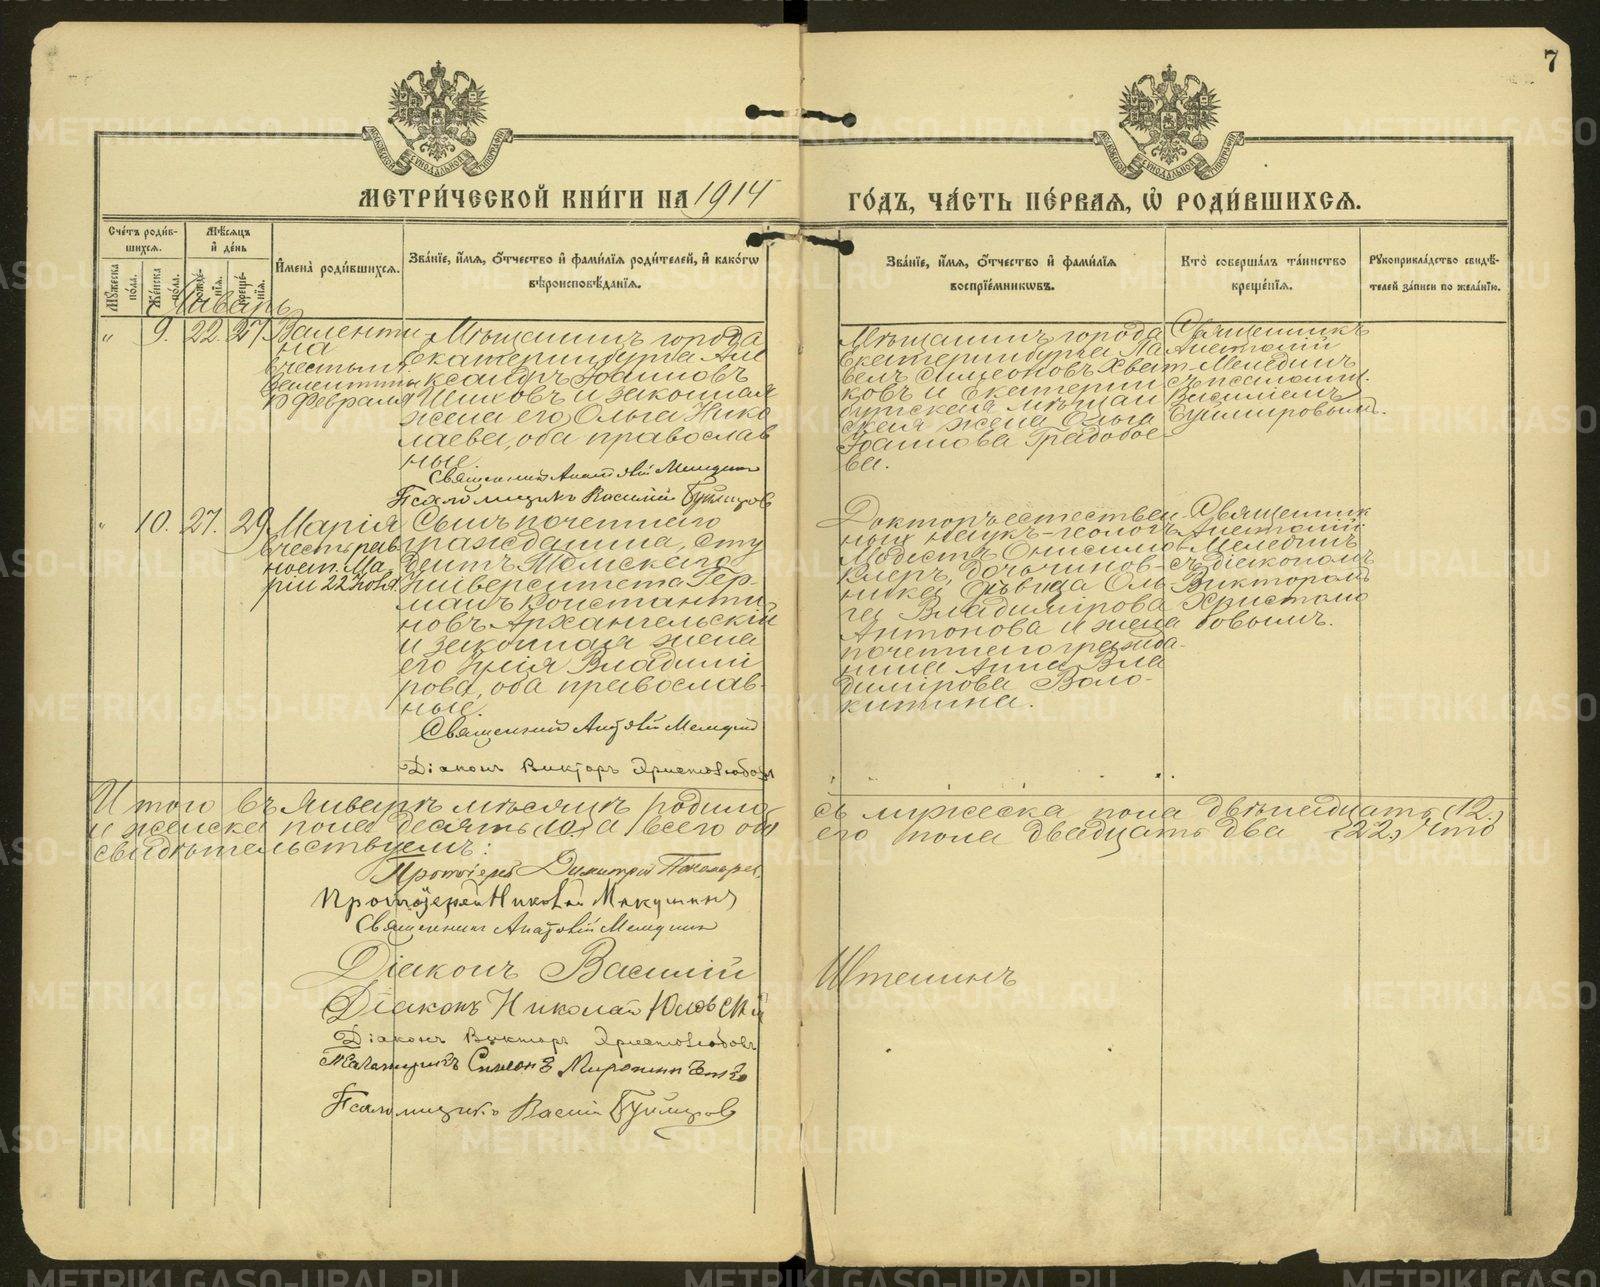 7
МЕТРИ́ЧЕСКОЙ КНИ́ГИ НА 1914 ГО́ДЪ, ЧА́СТЬ ПЕ́РВАЯ, Ѡ РОДИ́ВШИХСЯ.
Сче́тъ роди́вшихся.
Мꙋжеска по́ла.
Же́нска по́ла.
Мѣ́сяцъ и де́нь
рожде́нїя.
креще́нїя.
Имена̀ роди́вшихся.
Зва́нїе, и́мя, о́тчество и фами́лїя роди́телей, и како́гѡ вѣроисповѣ́данїя.
Зва́нїе, и́мя, о́тчество и фами́лїя воспрїе́мниковъ.
Кто̀ соверша́лъ та́инство креще́нїя.
Рꙋкоприкла́дство свидѣ́телей за́писи по жела́нїю.
Январь
" 9. 22. 27.
Валенти
на
въ честь м.
Валентины
10 Февраля
Мѣщанинъ города
Екатеринбурга Але
ксандръ Іоанновъ
и законная
жена его Ольга Нико
лаева, оба православ
ные.
Священникъ Анатолій Мелединъ
Псаломщикъ Василій Буймировъ
Мѣщанинъ города
Екатеринбурга Па
велъ Симеоновъ Хват
ковъ и Екатерин
бургская мѣщан
ская жена Ольга
Іоаннова Градобое
ва.
Священникъ
Анатолій
Мелединъ
съ псаломщ.
Василіемъ
Буймировымъ.
" 10. 27. 29.
Марія
въ честь рав
ноап. Ма
ріи 22 Іюля.
Сынъ почетнаго
гражданина, сту
дентъ Томскаго
Университета Гер-
манъ Константи
новъ Архангельскій
и законная жена
его Юлія Владимі
рова, оба православ-
ные.
Священникъ Анатолій Мелединъ
Діаконъ Викторъ Христолюбовъ
Докторъ естествен
ныхъ наукъ-геологъ
Модестъ Онисимов
Клеръ, дочь чинов-
ника дѣвица Оль-
га Владимірова
Антонова и жена
почетнаго гражда-
нина Анна Вла
димірова Воло-
китина.
Священник
Анатолій
Мелединъ
съ діакономъ
Викторомъ
Христолю
бовымъ.
Итого въ Январѣ мѣсяцѣ родило
сь мужеска пола двѣнадцать (12.)
и женска пола десять (10.) а всего обо
его пола двадцать два (22.) что
свидѣтельствуемъ:
Протоіерей Димитрій
Протоіерей Николай Микушинъ
Священникъ Анатолій Мелединъ
Діаконъ Василій Штенинъ
Діаконъ Николай
Діаконъ Викторъ Христолюбовъ
Псаломщикъ Симеонъ
Псаломщикъ Василій Буймировъ
METRIKI.GASO-URAL.RU